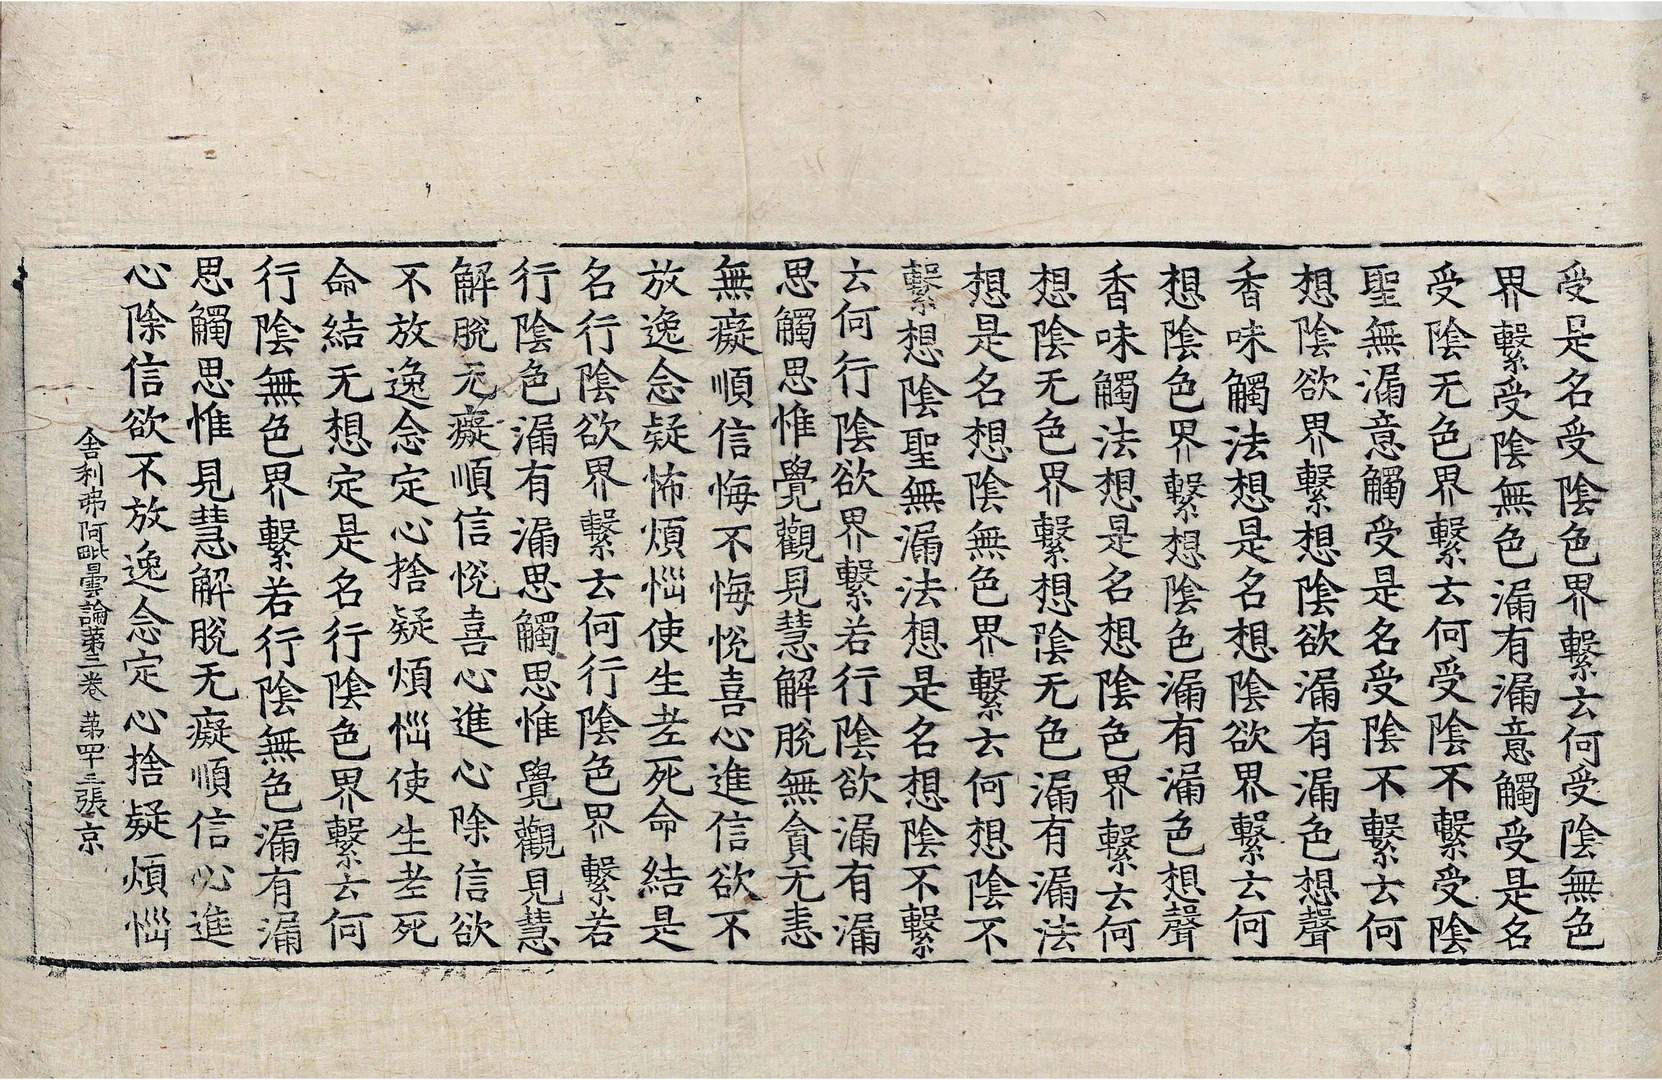 受是名受陰色界繫云何受陰無色
界繫受陰無色漏有漏意觸受是名
受陰无色界繫云何受陰不繫受陰
聖無漏意觸受是名受陰不繫云何
想陰欲界繫想陰欲漏有漏色想聲
香味觸法想是名想陰欲界繫云何
想陰色界繫想陰色漏有漏色想聲
香味觸法想是名想陰色界繫云何
想陰无色界繫想陰无色漏有漏法
想是名想陰無色界繫云何想陰不
繫想陰聖無漏法想是名想陰不繫
云何行陰欲界繫若行陰欲漏有漏
思觸思惟覺觀見慧解脫無貪无恚
無癡順信悔不悔悅喜心進信欲不
放逸念疑怖煩惱使生老死命結是
名行陰欲界繫云何行陰色界繫若
行陰色漏有漏思觸思惟覺觀見慧
解脫无癡順信悅喜心進心除信欲
不放逸念定心捨疑煩惱使生老死
命結无想定是名行陰色界繫云何
行陰無色界繫若行陰無色漏有漏
思觸思惟見慧解脫无癡順信心進
心除信欲不放逸念定心捨疑煩惱
舍利弗阿毗曇論第三卷 第四十三張 京